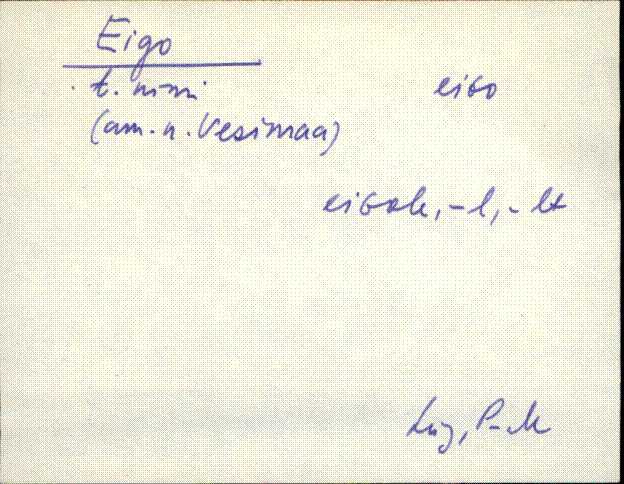 Eigo
t. nimi eiGo
(am. n. Vesimaa)
eiGole, -l, -lt
Lüg,